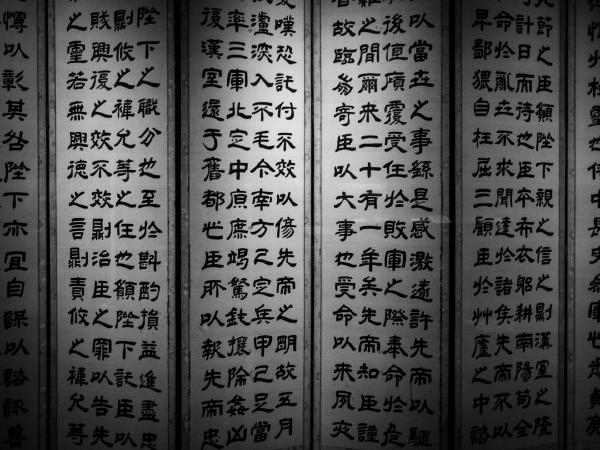 節之臣願陛下親之信之則漢室之隆
計日而待也臣本布衣躬耕南陽苟全
命於亂世不求聞達於諸侯先帝不以
卑鄙猥自枉屈三顧臣於艸廬之中諮
以當世之事繇是感激遂許先帝以驅
後值傾覆受任於敗軍之際奉命於危
難之間爾來二十有一年矣先帝知臣謹
故臨崩寄臣以大事也受命以來夙夜
憂嘆恐託付不效以傷先帝之明故五月
瀘深入不毛今南方已定兵甲已足當
率三軍北定中原庶竭駑鈍攘除姦凶
復漢室還于舊都此臣所以報先帝忠
陛下之職分也至於斟酌損益進盡忠
則攸之褘允等之任也願陛下託臣以
賊興復之效不效則治臣之罪以告先
之靈若無興德之言則責攸之褘允等
慢以彰其咎陛下亦宜自謀以諮諏善